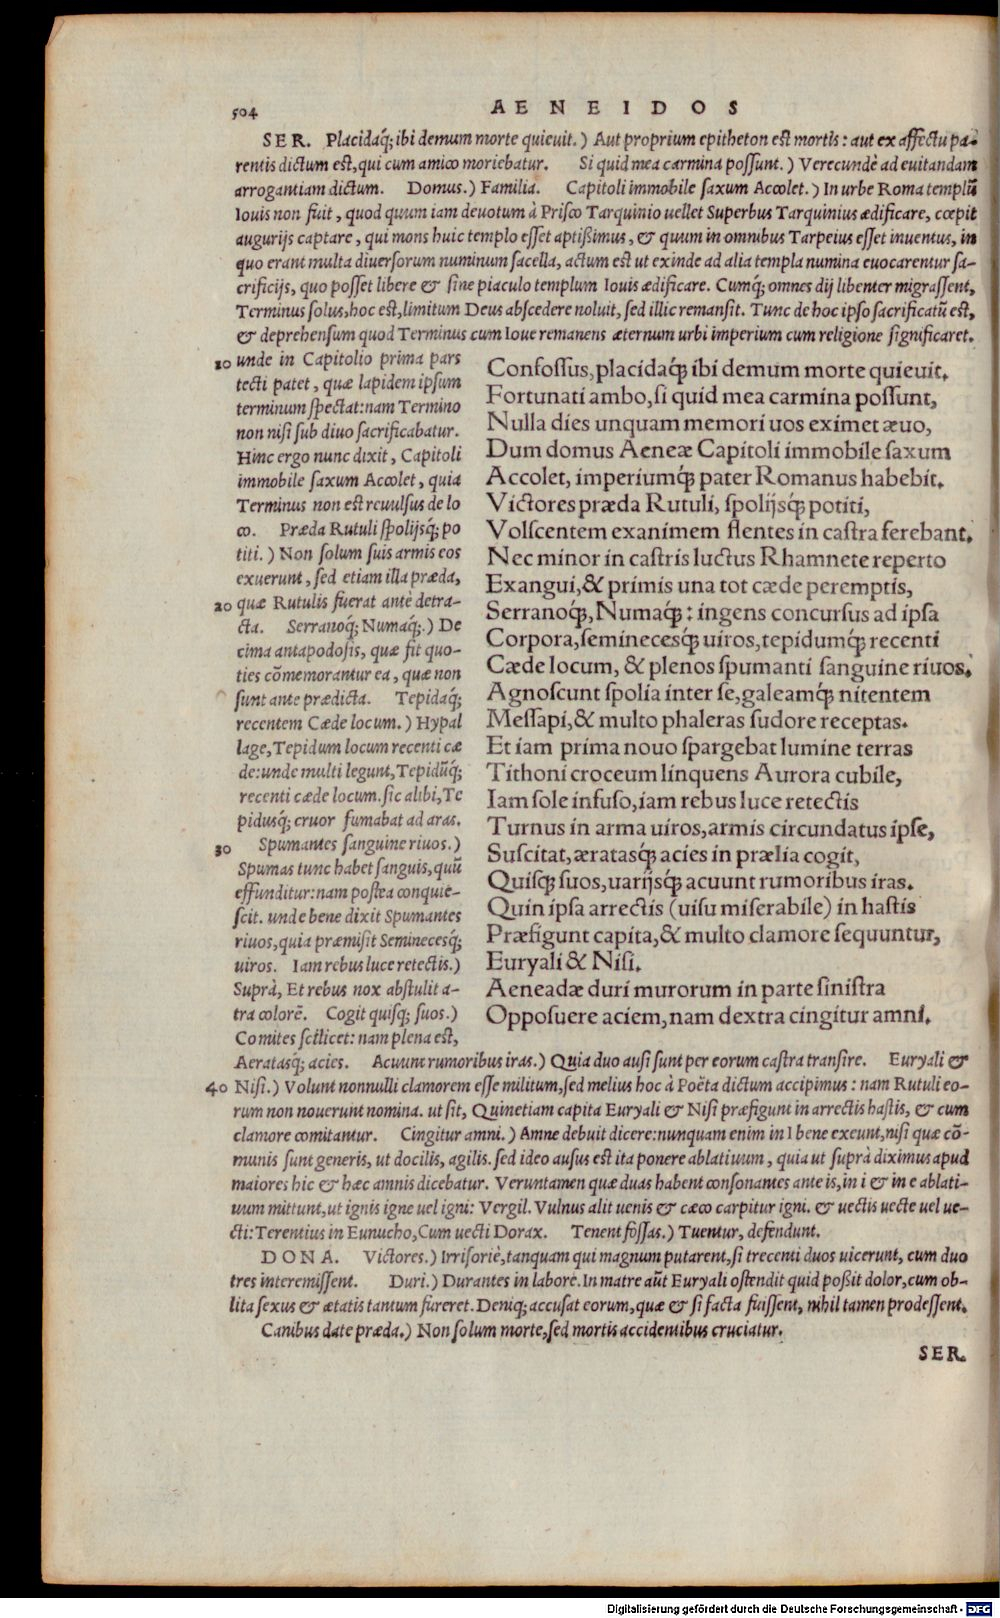 504 AENEIDOS
SER. Placidaq́; ibi demum morte quieuit.) Aut proprium epitheton est mortis: aut ex affectu pa-
rentis dictum est, qui cum amico moriebatur. Si quid mea carmina possunt.) Verecundè ad euitandam
arrogantiam dictum. Domus.) Familia. Capitoli immobile saxum Accolet.) In urbe Roma templũ
Iouis non fuit, quod quum iam deuotum à Prisco Tarquinio uellet Superbus Tarquinius ædificare, cœpit
augurijs captare, qui mons huic templo esset aptißimus, & quum in omnibus Tarpeius esset inuentus, in
quo erant multa diuersorum numinum sacella, actum est ut exinde ad alia templa numina euocarentur sa-
crificijs, quo posset libere & sine piaculo templum Iouis ædificare. Cumq́; omnes dij libenter migrassent,
Terminus solus, hoc est, limitum Deus abscedere noluit, sed illic remansit. Tunc de hoc ipso sacrificatũ est,
& deprehensum quod Terminus cum Ioue remanens æternum urbi imperium cum religione significaret.
10 unde in Capitolio prima pars
tecti patet, quæ lapidem ipsum
terminum spectat: nam Termino
non nisi sub diuo sacrificabatur.
Hinc ergo nunc dixit, Capitoli
immobile saxum Accolet, quia
Terminus non est reuulsus de lo
co. Præda Rutuli spolijsq́; po
titi.) Non solum suis armis eos
exuerunt, sed etiam illa præda,
20 quæ Rutulis fuerat antè detra-
cta. Serranoq́; Numaq́;.) De
cima antapodosis, quæ fit quo-
ties cõmemorantur ea, quæ non
sunt ante prædicta. Tepidaq́;
recentem Cæde locum.) Hypal
lage, Tepidum locum recenti cæ
de: unde multi legunt, Tepidũq́;
recenti cæde locum. sic alibi, Te
pidusq́; cruor fumabat ad aras.
30 Spumantes sanguine riuos.)
Spumas tunc habet sanguis, quũ
effunditur: nam postea conquie-
scit. unde bene dixit Spumantes
riuos, quia præmisit Seminecesq́;
uiros. Iam rebus luce retectis.)
Suprà, Et rebus nox abstulit a-
tra colorẽ. Cogit quisq; suos.)
Comites scilicet: nam plena est,
Confossus, placidaq́; ibi demum morte quieuit.
Fortunati ambo, si quid mea carmina possunt,
Nulla dies unquam memori uos eximet æuo,
Dum domus Aeneæ Capitoli immobile saxum
Accolet, imperiumq́; pater Romanus habebit.
Victores præda Rutuli, spolijsq́; potiti,
Volscentem exanimem flentes in castra ferebant.
Nec minor in castris luctus Rhamnete reperto
Exangui, & primis una tot cæde peremptis,
Serranoq́;, Numaq́;: ingens concursus ad ipsa
Corpora, seminecesq́; uiros, tepidumq́; recenti
Cæde locum, & plenos spumanti sanguine riuos.
Agnoscunt spolia inter se, galeamq́; nitentem
Messapi, & multo phaleras sudore receptas.
Et iam prima nouo spargebat lumine terras
Tithoni croceum linquens Aurora cubile,
Iam sole infuso, iam rebus luce retectis
Turnus in arma uiros, armis circundatus ipse,
Suscitat, æratasq́; acies in prælia cogit,
Quisq; suos, uarijsq́; acuunt rumoribus iras.
Quin ipsa arrectis (uisu miserabile) in hastis
Præfigunt capita, & multo clamore sequuntur,
Euryali & Nisi.
Aeneadæ duri murorum in parte sinistra
Opposuere aciem, nam dextra cingitur amni.
Aeratasq́; acies. Acuunt rumoribus iras.) Quia duo ausi sunt per eorum castra transire. Euryali &
40 Nisi.) Volunt nonnulli clamorem esse militum, sed melius hoc à Poëta dictum accipimus: nam Rutuli eo-
rum non nouerunt nomina. ut sit, Quinetiam capita Euryali & Nisi præfigunt in arrectis hastis, & cum
clamore comitantur. Cingitur amni.) Amne debuit dicere: nunquam enim in I bene exeunt, nisi quæ cõ-
munis sunt generis, ut docilis, agilis. sed ideo ausus est ita ponere ablatiuum, quia ut suprà diximus apud
maiores hic & hæc amnis dicebatur. Veruntamen quæ duas habent consonantes ante is, in i & in e ablati-
uum mittunt, ut ignis igne uel igni: Vergil. Vulnus alit uenis & cæco carpitur igni. & uectis uecte uel ue-
cti: Terentius in Eunucho, Cum uecti Dorax. Tenent fossas.) Tuentur, defendunt.
DONA. Victores.) Irrisoriè, tanquam qui magnum putarent, si trecenti duos uicerunt, cum duo
tres interemissent. Duri.) Durantes in labore. In matre aũt Euryali ostendit quid poßit dolor, cum ob-
lita sexus & ætatis tantum fureret. Deniq; accusat eorum, quæ & si facta fuissent, nihil tamen prodessent.
Canibus date præda.) Non solum morte, sed mortis accidentibus cruciatur.
SER.
Digitalisierung gefördert durch die Deutsche Forschungsgemeinschaft - DFG